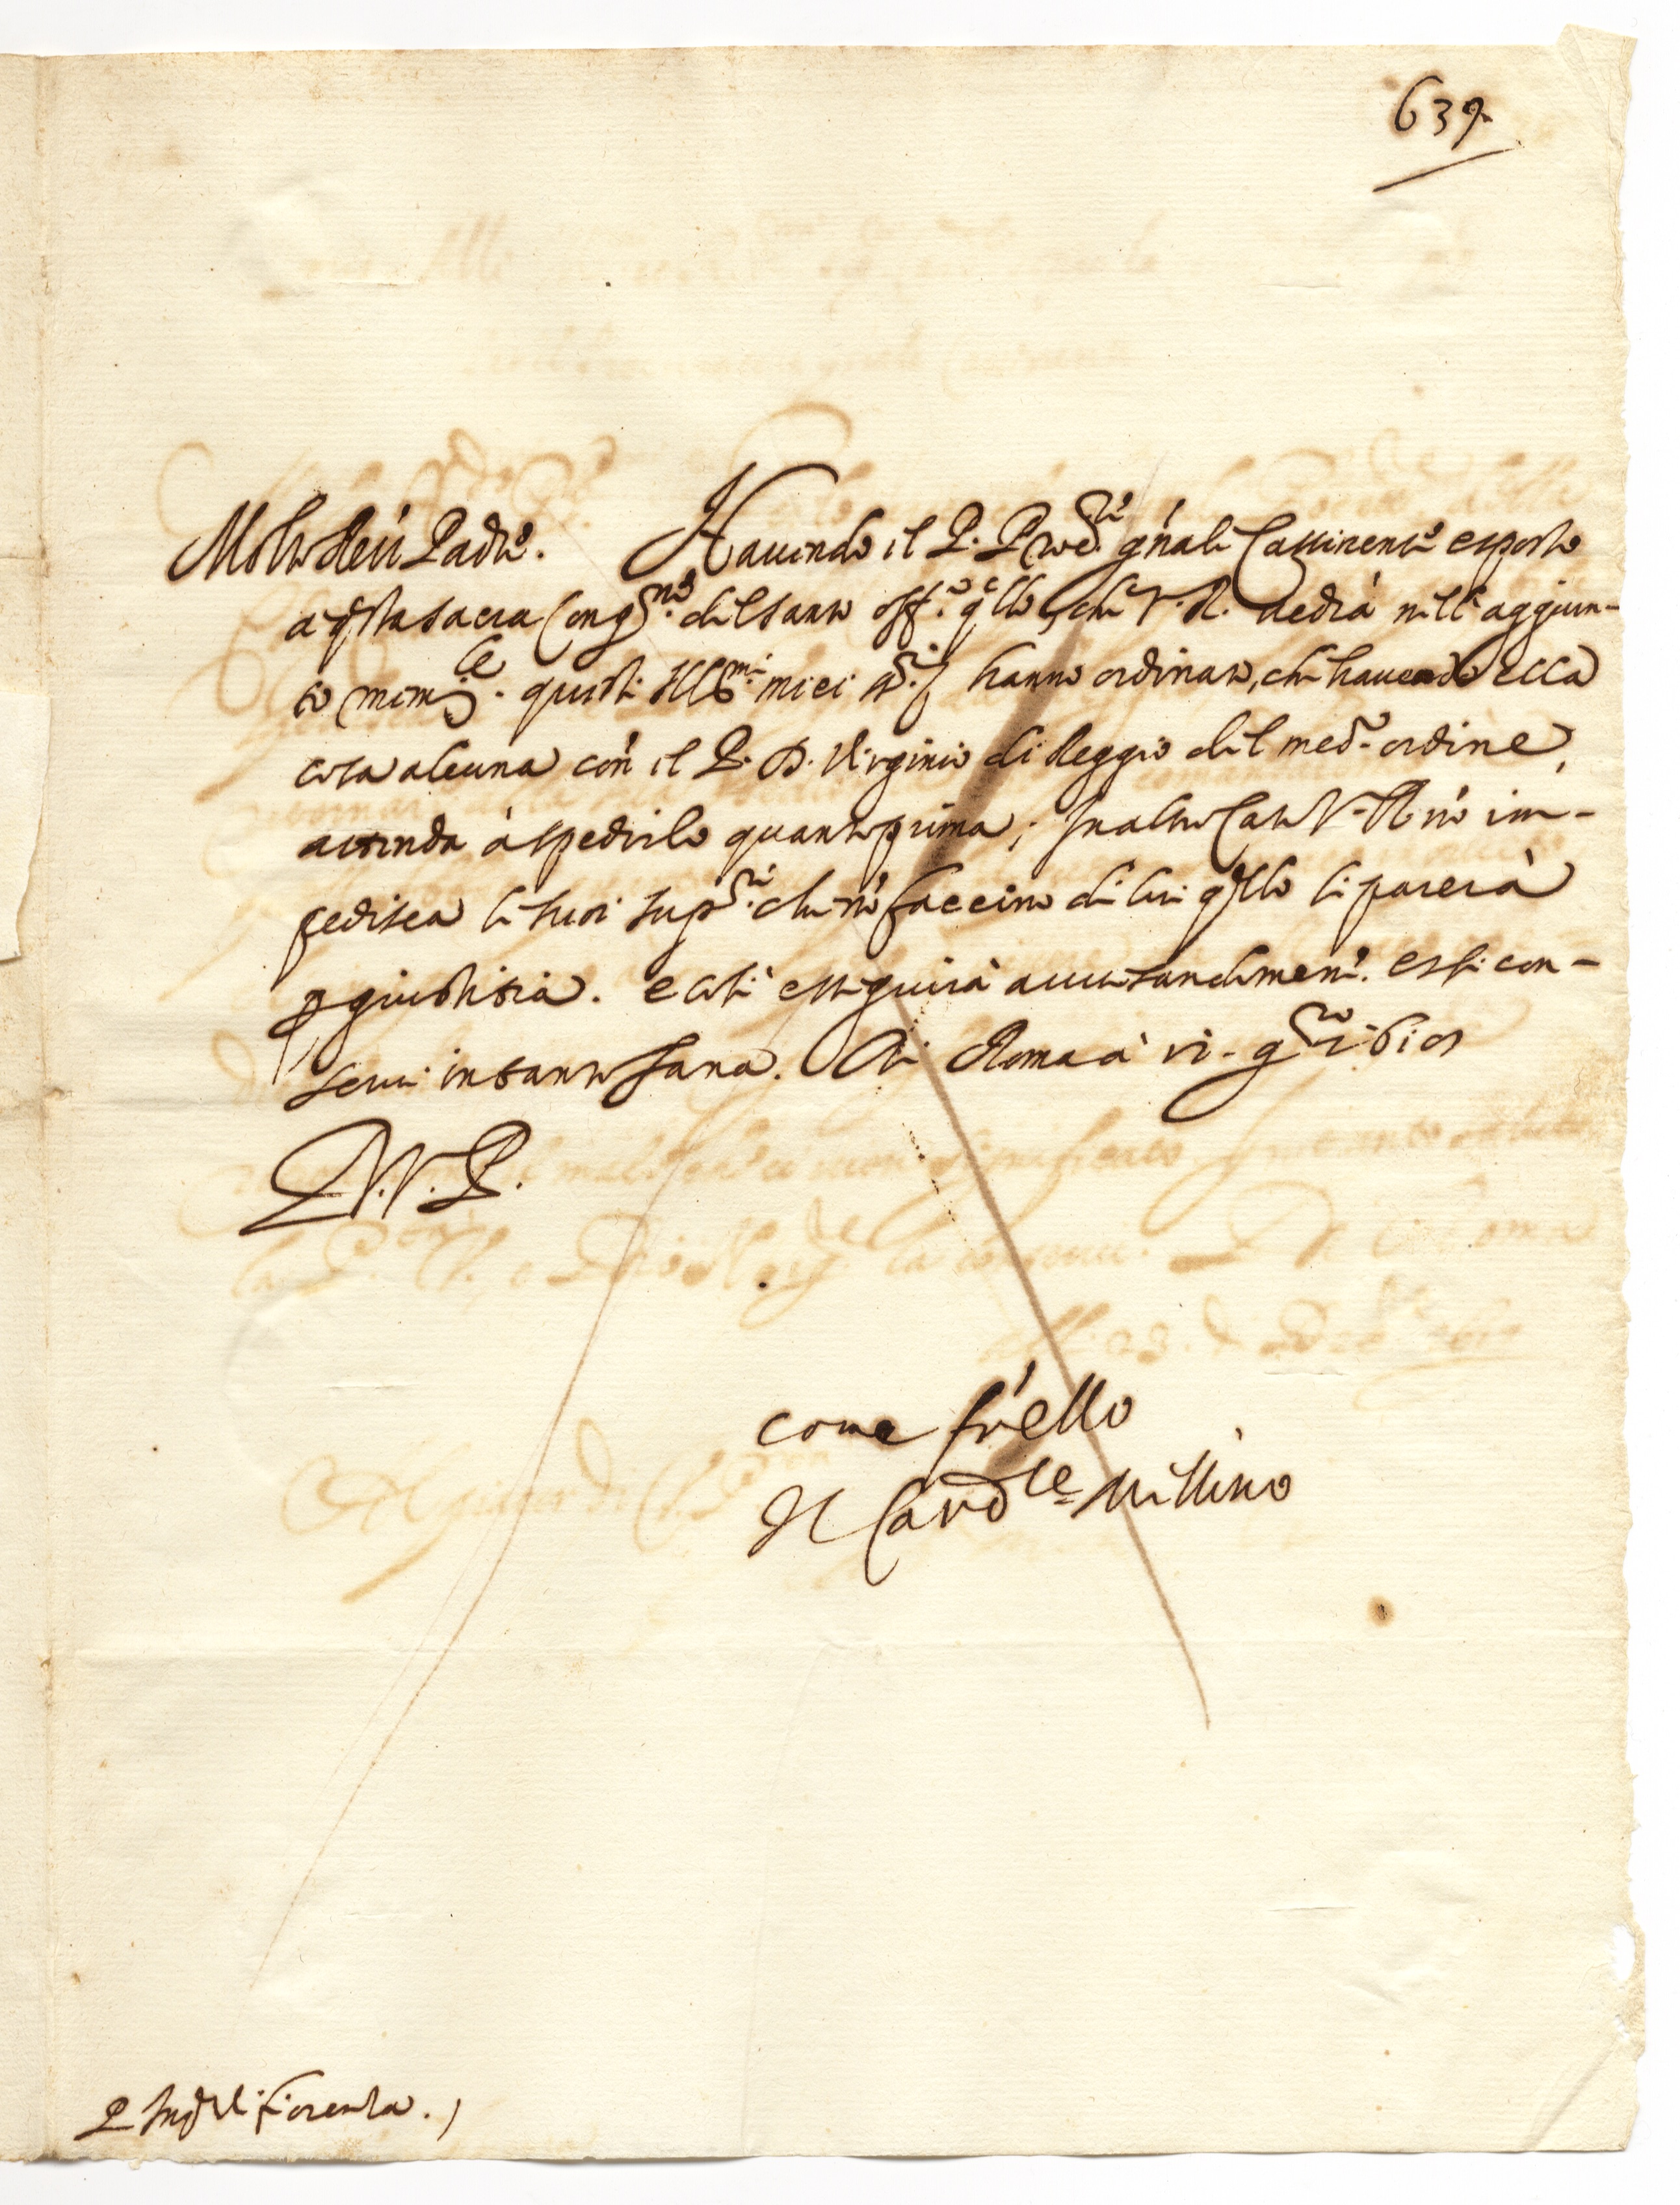 639.
Molto Reu. Padre. Hauendo il P. Prore. g'nale Cassinense esposto
a q'sta sacra Cong.ne del santo off.o q'llo, che V. R. vedrà nell'aggiun-
to mem.le. questi Ill.mi miei ss.ri hanno ordinato, che hauendo ella
cosa alcuna con il P. D. Virginio di Reggio del med.o ordine,
attenda à spedirlo quanto prima; In altro caso V. R. nò im-
pedisca li suoi sup.ri che nò faccino di lui q'llo li parerà
p giustitia. e così esseguirà auuisandomene. e si con-
serui in santo sana. Di Roma à vi.
D. V. P.
come fr'ello
Il Card.le Millino
P. Inq.re di Fiorenza.